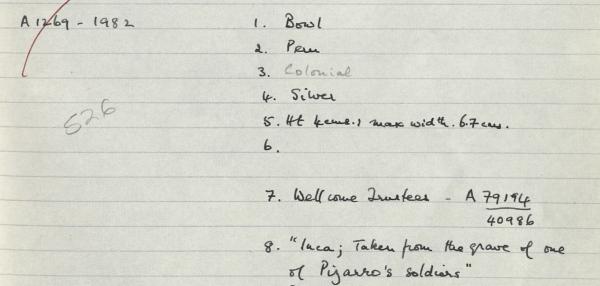 A 1269 - 1982
1. Bowl
2. Peru
3. Colonial
526
4. Silver
5. Ht 4cms.; max width. 6.7cms.
6.
7. Wellcome Trustees - A 79194
40986
8. "Inca; Taken from the grave of one
of Pizarro's soldiers"